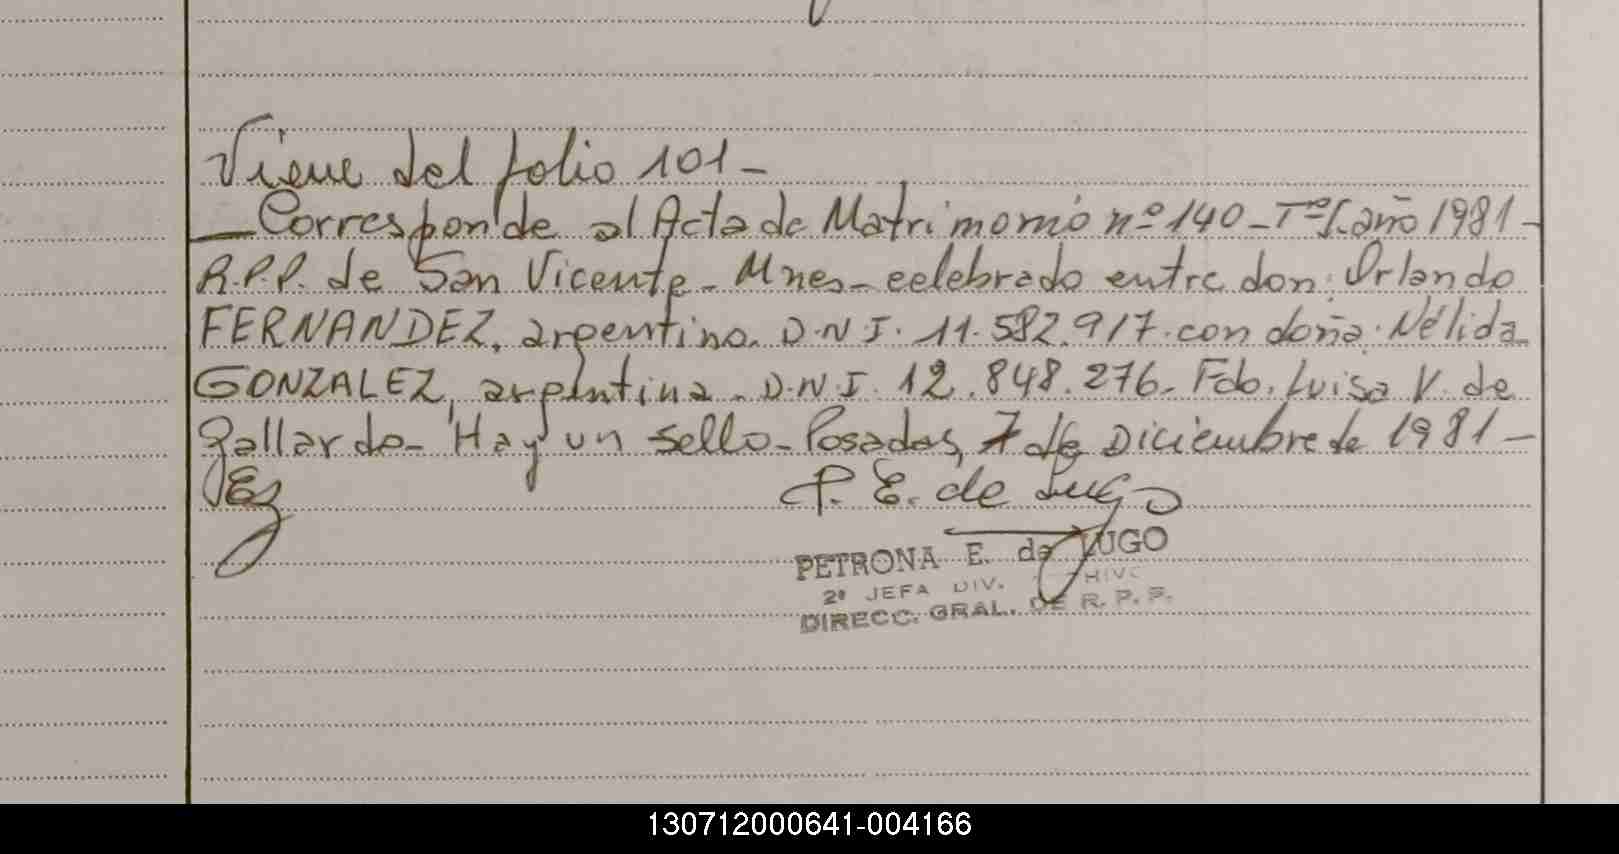 Viene del folio 101 -
Corresponde al Acta de Matrimonio nº 140 - Tº I. año 1981 -
R.P.P. de San Vicente - Mnes - celebrado entre don: Orlando
FERNANDEZ, argentino. D.N.I. 11.582.917. con doña: Nélida
GONZALEZ, argentina. D.N.I. 12.848.276. Fdo. Luisa V. de
Gallardo - Hay un sello - Posadas, 7 de Diciembre de 1981 -
P. E. de Lugo
PETRONA E. de LUGO
2ª JEFA DIV.
DIRECC. GRAL. DE R. P. P.
130712000641-004166